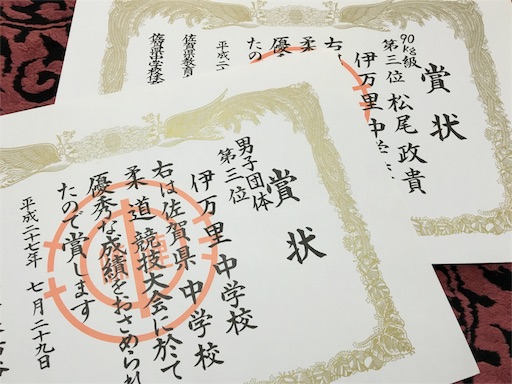 賞状
男子団体
第三位
伊万里中学校
右は佐賀県中学校
柔道競技大会に於て
優秀な成績をおさめられ
たので賞します
平成二十七年 七月二十九日
賞状
90kg級
第三位 松尾 政貴
伊万里中学
右
柔
優秀
たの
平成二
佐賀県教育
佐賀県中学校体